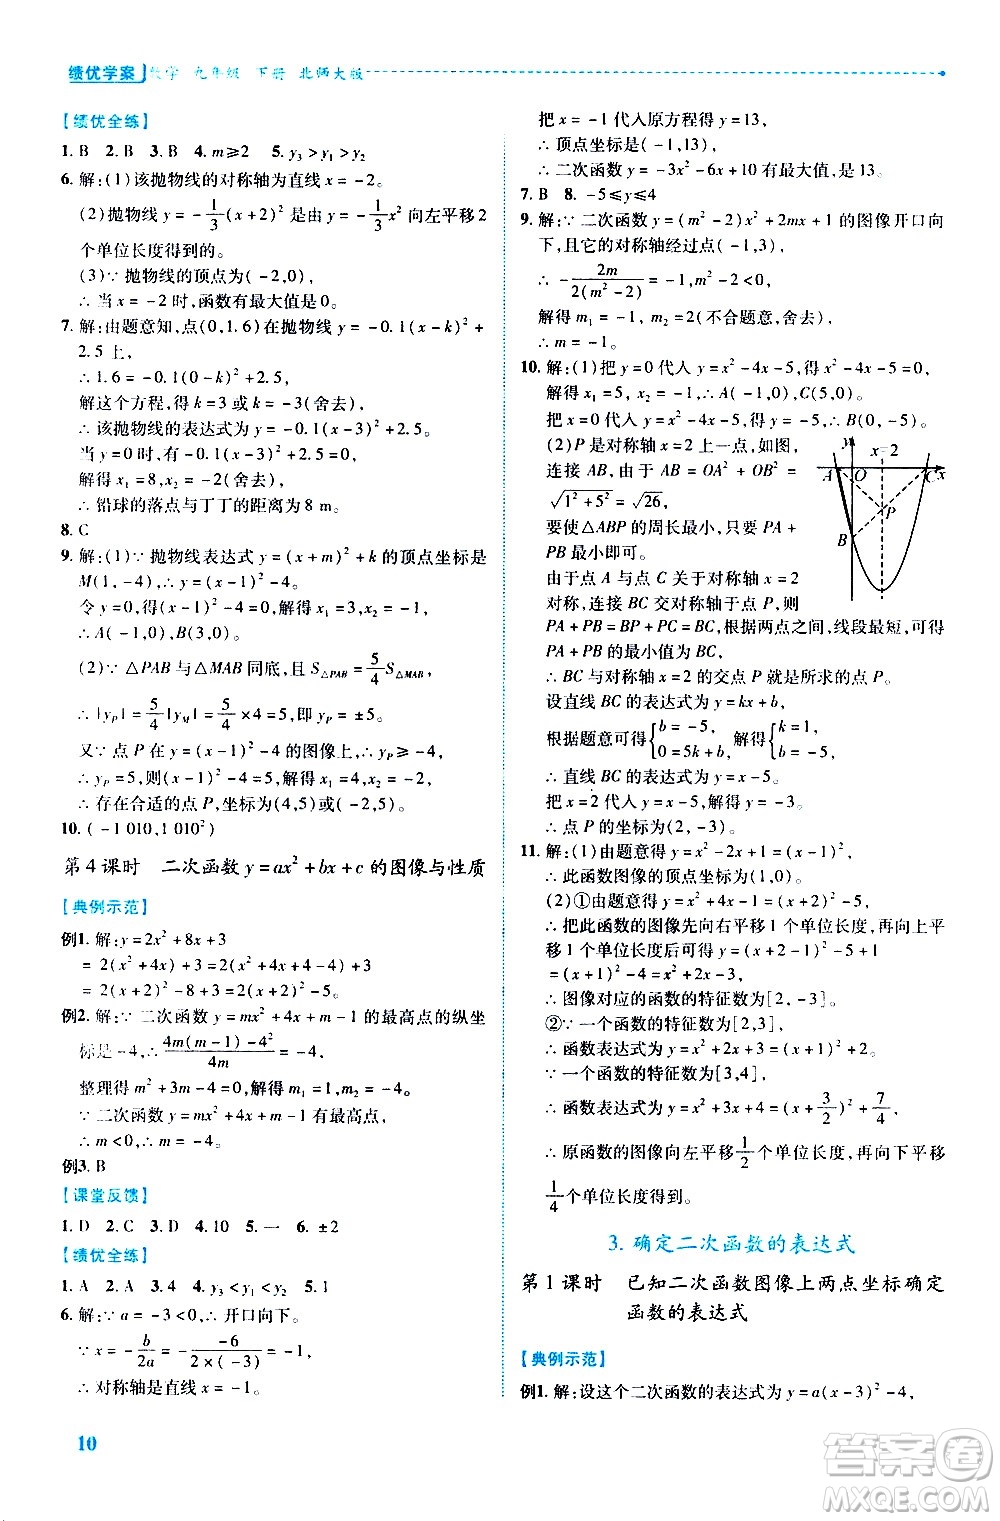 绩优学案 数学 九年级 下册 北师大版
【绩优全练】
1. B 2. B 3. B 4. m≥2 5. y₃>y₁>y₂
6. 解:(1)该抛物线的对称轴为直线 x=-2。
(2)抛物线 y=-1/3(x+2)² 是由 y=-1/3x² 向左平移2
个单位长度得到的。
(3)∵抛物线的顶点为(-2,0),
∴当 x=-2时,函数有最大值是0。
7. 解:由题意知,点(0,1.6)在抛物线 y=-0.1(x-k)²+
2.5上,
∴1.6=-0.1(0-k)²+2.5,
解这个方程,得 k=3或 k=-3(舍去),
∴该抛物线的表达式为 y=-0.1(x-3)²+2.5。
当 y=0时,有-0.1(x-3)²+2.5=0,
解得 x₁=8,x₂=-2(舍去),
∴铅球的落点与丁丁的距离为8 m。
8. C
9. 解:(1)∵抛物线表达式 y=(x+m)²+k 的顶点坐标是
M(1,-4),∴y=(x-1)²-4。
令 y=0,得(x-1)²-4=0,解得 x₁=3,x₂=-1,
∴A(-1,0),B(3,0)。
(2)∵△PAB与△MAB同底,且 S△PAB=5/4S△MAB,
∴|yP|=5/4|yM|=5/4×4=5,即 yP=±5。
又∵点 P在 y=(x-1)²-4的图像上,∴yP≥-4。
∴yP=5,则(x-1)²-4=5,解得 x₁=4,x₂=-2。
∴存在合适的点 P,坐标为(4,5)或(-2,5)。
10. (-1 010,1 010²)
第4课时 二次函数 y=ax²+bx+c 的图像与性质
【典例示范】
例1. 解:y=2x²+8x+3
=2(x²+4x)+3=2(x²+4x+4-4)+3
=2(x+2)²-8+3=2(x+2)²-5。
例2. 解:∵二次函数 y=mx²+4x+m-1的最高点的纵坐
标是-4,∴4m(m-1)-4²/4m=-4,
整理得 m²+3m-4=0,解得 m₁=1,m₂=-4。
∵二次函数 y=mx²+4x+m-1有最高点,
∴m<0,∴m=-4。
例3. B
【课堂反馈】
1. D 2. C 3. D 4. 10 5. 一 6. ±2
【绩优全练】
1. A 2. A 3. 4 4. y₃<y₁<y₂ 5. 1
6. 解:∵a=-3<0,∴开口向下。
∵x=-b/2a=--6/2×(-3)=-1,
∴对称轴是直线 x=-1。
10
把 x=-1代入原方程得 y=13,
∴顶点坐标是(-1,13),
∴二次函数 y=-3x²-6x+10有最大值,是13。
7. B 8. -5≤y≤4
9. 解:∵二次函数 y=(m²-2)x²+2mx+1的图像开口向
下,且它的对称轴经过点(-1,3),
∴-2m/2(m²-2)=-1,m²-2<0,
解得 m₁=-1,m₂=2(不合题意,舍去),
∴m=-1。
10. 解:(1)把 y=0代入 y=x²-4x-5,得 x²-4x-5=0,
解得 x₁=5,x₂=-1,∴A(-1,0),C(5,0)。
把 x=0代入 y=x²-4x-5,得 y=-5,∴B(0,-5)。
(2)P是对称轴 x=2上一点,如图,
连接 AB,由于 AB=√OA²+OB²=
√1²+5²=√26,
要使△ABP的周长最小,只要 PA+
PB最小即可。
由于点 A与点 C关于对称轴 x=2
对称,连接 BC交对称轴于点 P,则
PA+PB=BP+PC=BC,根据两点之间,线段最短,可得
PA+PB的最小值为 BC,
∴BC与对称轴 x=2的交点 P就是所求的点 P。
设直线 BC的表达式为 y=kx+b,
根据题意可得{b=-5,0=5k+b,解得{k=1,b=-5。
∴直线 BC的表达式为 y=x-5。
把 x=2代入 y=x-5,得 y=-3,
∴点 P的坐标为(2,-3)。
y
x=2
A O C x
P
B
11. 解:(1)由题意可得 y=x²-2x+1=(x-1)²,
∴此函数图像的顶点坐标为(1,0)。
(2)①由题意可得 y=x²+4x-1=(x+2)²-5,
∴把此函数的图像先向右平移1个单位长度,再向上平
移1个单位长度后可得 y=(x+2-1)²-5+1
=(x+1)²-4=x²+2x-3,
∴图像对应的函数的特征数为[2,-3]。
②∵一个函数的特征数为[2,3],
∴函数表达式为 y=x²+2x+3=(x+1)²+2。
∵一个函数的特征数为[3,4],
∴函数表达式为 y=x²+3x+4=(x+3/2)²+7/4,
∴原函数的图像向左平移1/2个单位长度,再向下平移
1/4个单位长度得到。
3. 确定二次函数的表达式
第1课时 已知二次函数图像上两点坐标确定
函数的表达式
【典例示范】
例1. 解:设这个二次函数的表达式为 y=a(x-3)²-4,
答案圈
MXQE.COM